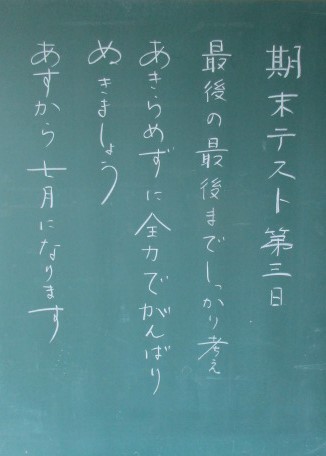 期末テスト第三日
最後の最後までしっかり考え
あきらめずに全力でがんばり
ぬきましょう
あすから七月になります